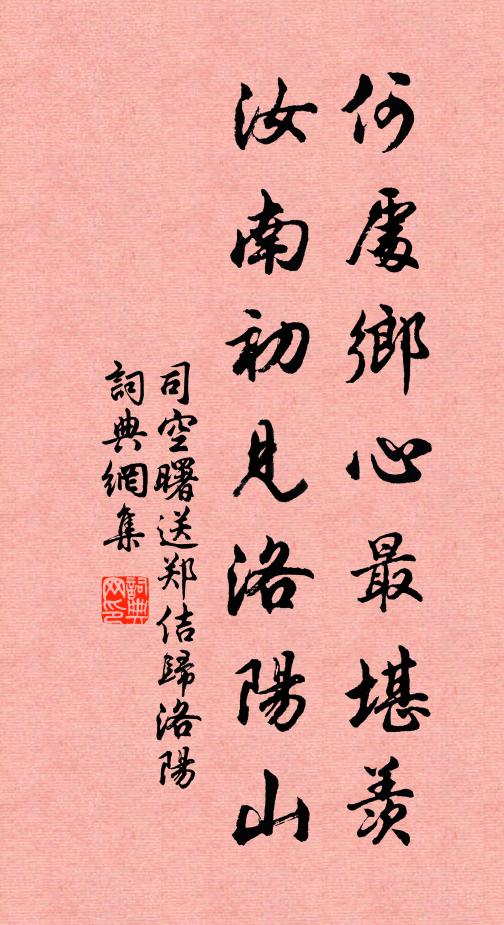 何處鄉心最堪羨
汝南初見洛陽山
司空曙送郑佶歸洛陽
詞典網集
詞典网印